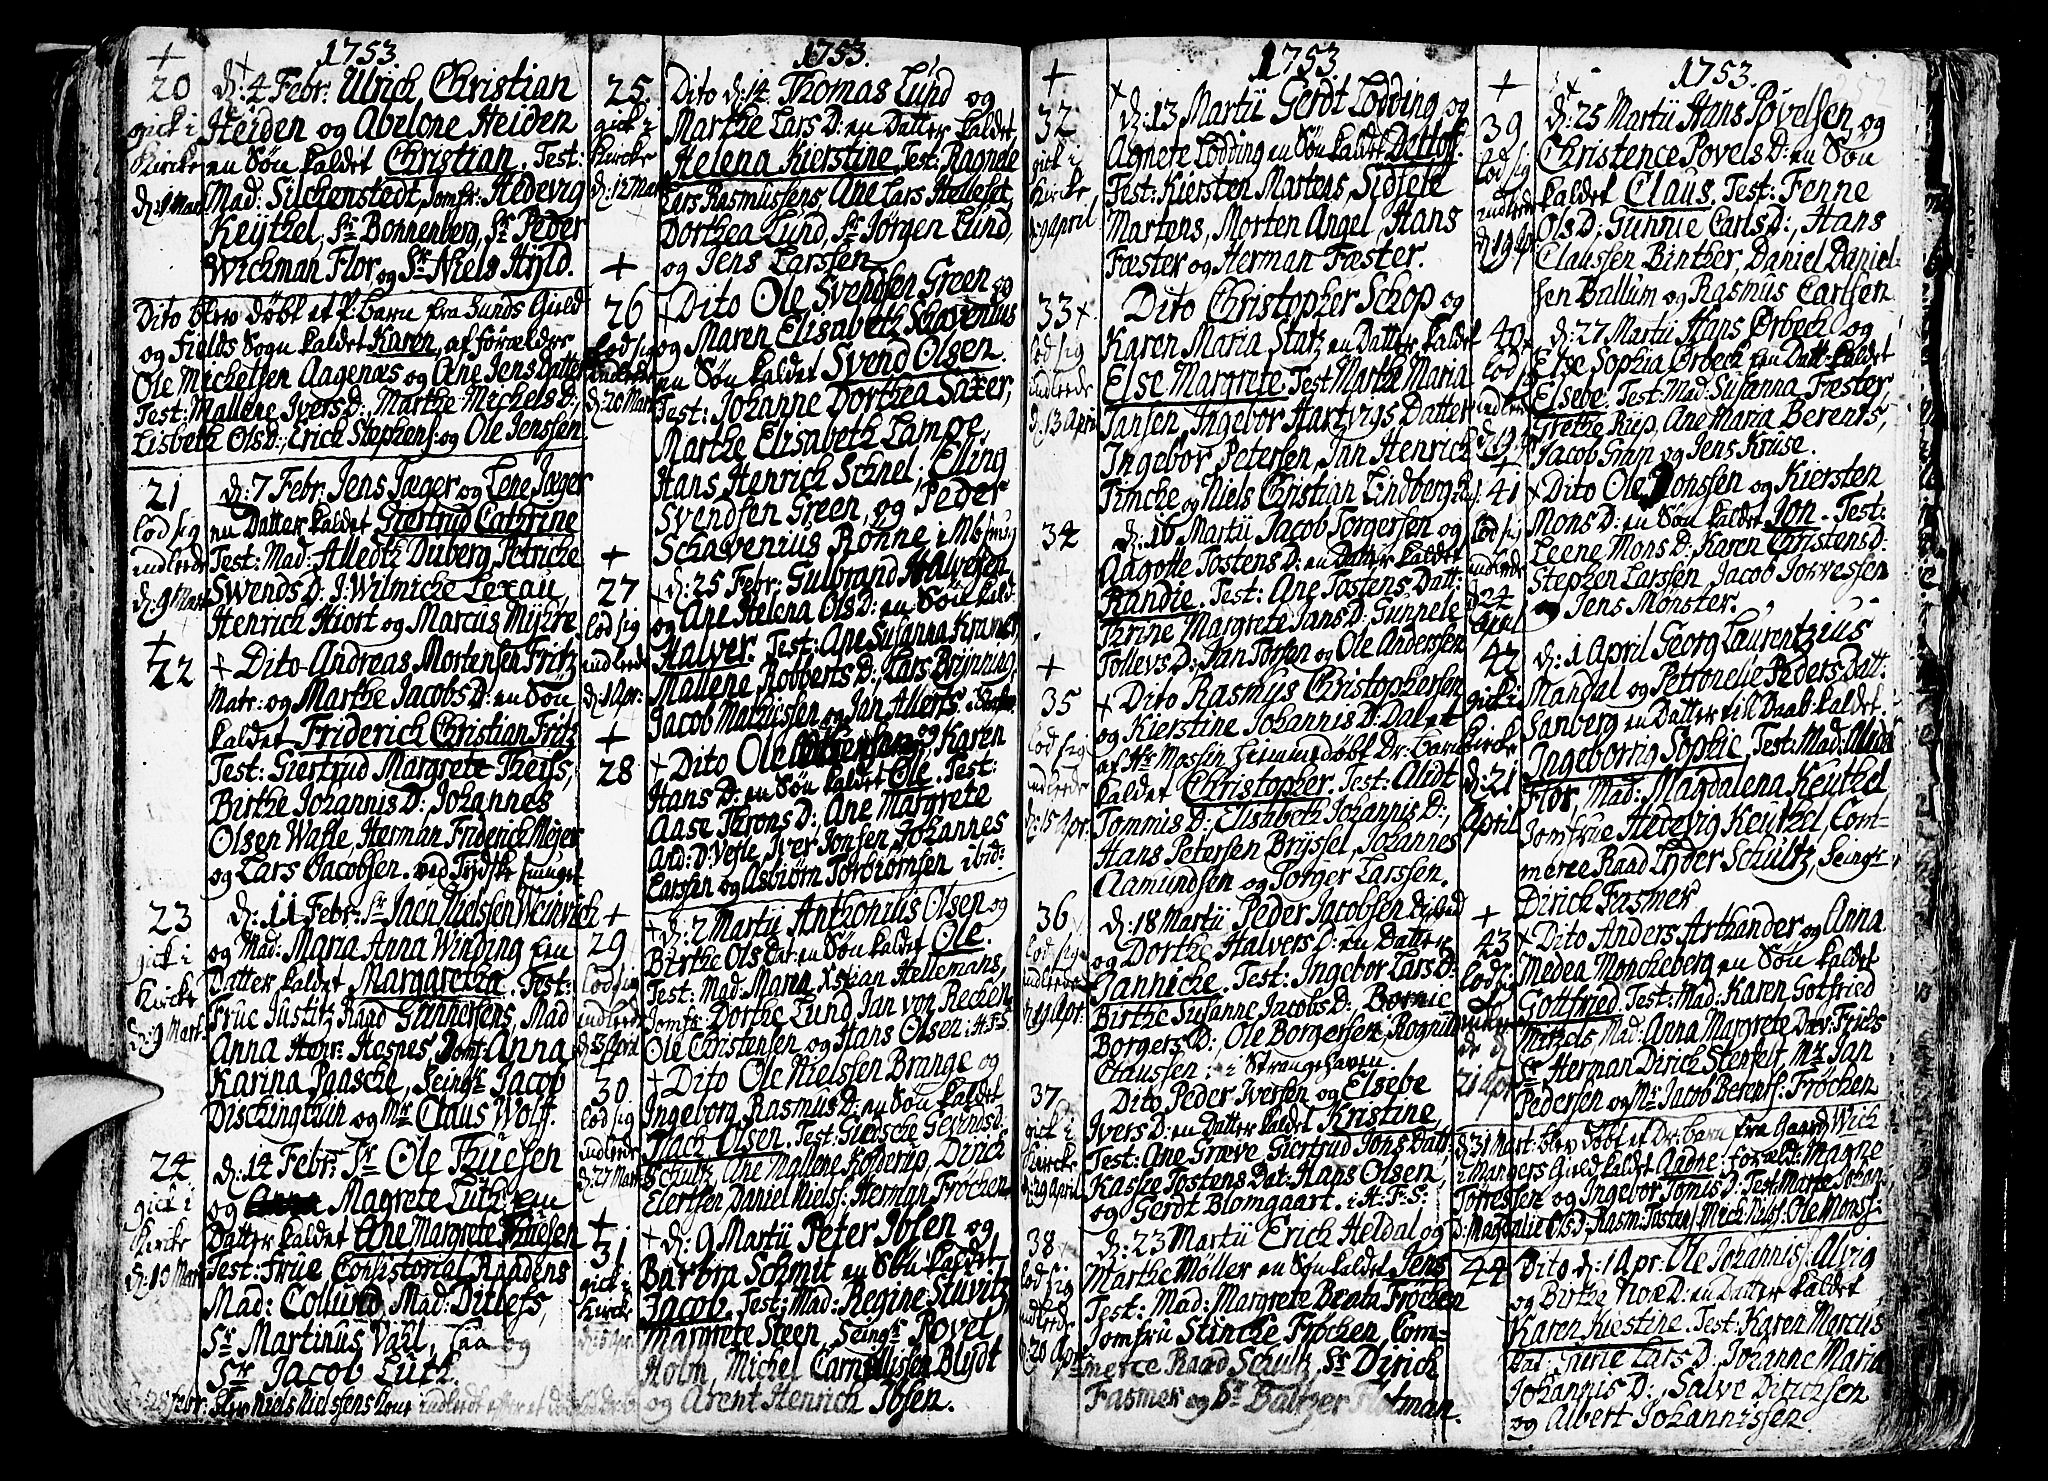 1753.
+
20
gick i
Kircke
d: 9 Mart
d: 4 Febr: Ulrich Christian
Heiden og Abelone Heiden
en Søn kaldet Christian. Test:
Mad: Silchenstedt, Jomfr: Hedevig
Keytzel, Sr Bonnenberg, Sr Peder
Wickman Flor, og Sr Niels Hyld.
Dito blev døbt et P: barn fra Sunds Gield
og Fields Sogn kaldet Karen, af forældre
Ole Michelsen Aagenæs og Ane Jens Datter
Test: Mallene Ivers D:, Marthe Michels D:
Lisbeth Ols D:, Erich Stephens: og Ole Jenssen
21
lod sig
indlede
d: 9 Mart
d: 7 Febr: Jens Jæger og Lene Jæger
en Datter kaldet Giertrud Cathrine
Test: Mad: Alledtz Duberg, Petriche
Swends D: J: Wilmicke Lexau,
Henrich Hiort og Marcus Myhre.
+
22
+ Dito Andreas Mortensen Fritz
Matr: og Marthe Jacobs D: en Søn
kaldet Friderich Christian Fritz
Test: Giertrud Margrete Theiss,
Birthe Johannis D: Johannes
Olsen Wasle, Herman Friderich Meyer
og Lars Jacobsen. ved Tydske smuget
23
gick i
Kircke
d: 9 Mart.
d: 11 Febr: Sr Jaen Nielsen Weinrich
og Mad: Maria Anna Winding een
Datter kaldet Margaretha. Test:
Frue Justitz Raad Gunnersens, Mad
Anna Henr: Haspes, Jomf: Anna
Karina Paasche, Seingr Jacob
Dischingtuin og Mr Claus Wolf.
24
gick i
Kircke
d: 10 Mart
d: 14 Febr: Sr Ole Thuesen
og Magrete Lüth een
Datter kaldet Ane Margrete Thuesen
Test: Frue Consistorial Raadens
Mad: Collund, Mad: Ditlefs,
Sr Martinus Vahl, og
Sr Jacob Lüth.
d: 28 Febr: blev Niels Nielsens Kone indledt efter et
1753.
25
gick i
Kircke
d: 12 Mart
Dito d: 14 Thomas Lund og
Marthe Lars D: en Datter kaldet
Helena Kierstine. Test: Ragnele
Lars Rasmussens, Ane Lars Helleset,
Dorthea Lund, Sr Jørgen Lund,
og Jens Larssen
+
26
lod sig
indlede
d: 20 Mart
+ Dito Ole Svendsen Green og
og Maren Elisabeth Schavenius
en Søn kaldet Svend Olsen.
Test: Johanne Dorthea Saxer,
Marthe Elisabeth Lampe,
Hans Henrich Schnel, Elling
Svendsen Green, og Peder
Schavenius Rønne i Mssmug
+
27
lod sig
indlede
d: 1 Apr:
+ d: 25 Febr: Gulbrand Halvesen
og Ane Helena Ols D: en Søn kald:
Halver. Test: Ane Susanna Kramer,
Mallene Robberts D:, Lars Brynning,
Jacob Marcussen og Jan Allerts
+
28
+ Dito Ole og Karen
Hans D: en Søn kaldet Ole. Test:
Aase Throns D:, Ane Margrete
And: D: Vefle, Iver Jonsen, Johannes
Larssen og Asbiørn Torbiørnsen ibid:
+
29
lod sig
indlede
d: 13 April
+ d: 2 Martii Anthonius Olsen og
Birthe Ols Dat: en Søn kaldet Ole.
Test: Mad: Maria Xstian Hellemans,
Jomfr Dorthe Lund, Jan von Recken,
Ole Christensen og Hans Olsen: H: F: S:
+
30
lod sig
indlede
d: 27 Mart
+ Dito Ole Nielssen Brange og
Ingeborg Rasmus D: en Søn kaldet
Mack Olsen. Test: Giesche Gevinds D:
Schultz, Ane Mallene Kolderup, Dirich
Elertsen, Daniel Niels: Herman Frøchen
+
31
gick i
Kircke
+ d: 9 Martii Peter Ibsen og
Barbra Schmit en Søn kaldet
Jacob. Test: Mad: Regine Stuvitz
Margrete Steen, Seingr Povel
Holm, Michel Carnillisen Blydt
og Arent Henrich Ibsen.
1753.
+
32
gick i
Kircke
d: 9 April
+ d: 13 Martii Gerdt Lodding og
Agnete Lodding en Søn kaldet Dettlof.
Test: Kiersten Martens, Sidsele
Martens, Morten Angel, Hans
Fæster og Herman Fæster.
33 +
lod sig
indlede
d: 13 April
Dito Christopher Schop og
Karen Maria Statz en Datter kaldet
Else Margrete. Test: Marthe Maria
Jansen, Ingebor Hartvigs Datter
Ingebor Petersen, Jan Henrich
Timcke og Niels Christian Lindberg
34
d: 16 Martii Jacob Torgersen og
Aagotte Tostens D: en Datter kaldet
Randie. Test: Ane Tostens Datt:
Thrine Margrete Jans D: Gunnele
Tollevs D: Jan Torsen og Ole Anderssen
+
35
lod sig
indlede
d: 15 Apr:
+ Dito Rasmus Christophersen
og Kierstine Johannis D: Dalet
af Hr Mossin Hiemmedøbt Dr: barn
kaldet Christopher. Test: Alidt
Tommis D:, Elisabeth Johannis D:,
Hans Petersen Bryssel, Johannes
Aamundsen og Torger Larssen.
36
lod sig
indlede
d: 19 Apr.
d: 18 Martii Peder Jacobsen
og Dorthe Halvers D: en Datter
Jannicke. Test: Ingebor Lars D:
Birthe Susanne Jacobs D: Bornie
Borgers D: Ole Borgersen, Rognild
Claussen i Strangehaven.
37
gick i
Kircke
d: 29 April
Dito Peder Iversen og Elsebe
Ivers D: en Datter kaldet Kristine
Test: Ane Græve, Giertrud Jons Datt:
Kassie Tostens Dat: Hans Olsen,
og Gerdt Blomgaart. i H: F: S:
38
lod sig
indlede
d: 20 Apr:
d: 23 Martii Erich Heldal og
Marthe Møller en Søn kaldet Jens
Test: Mad: Margrete Beata Frøchen
Jomfru Stincke Frøchen, Com-
merce Raad Schultz, Sr Dirich
Fasmer og Sr Baltzer Flotman.
1753.
252
+
39
lod sig
indlede
d: 19 Apr
d: 25 Martii Hans Povelsen og
Christence Povels D: en Søn
kaldet Claus. Test: Fenne
Ols D: Gunnie Carls D:, Hans
Claussen Binther, Daniel Daniel-
sen Ballum og Rasmus Carlsen
40
lod sig
indlede
d: 19 Apr
d: 27 Martii Hans Ørbech og
Else Sophia Ørbech en Datt: kaldet
Elsebe. Test: Mad: Susanna Fæster,
Grethe Riep, Ane Maria Berents,
Jacob Gram og Jens Kruse.
+
41
lod sig
indlede
d: 24
April
+ Dito Ole Jonssen og Kiersten
Mons D: en Søn kaldet Jon. Test:
Leene Mons D: Karen Christens D:
Stephen Larssen, Jacob Joevessen
og Jens Mønster.
42
gick i
Kircke
d: 21
April
d: 1 April Georg Laurentzius
Mandal og Petronelle Peders Datt:
Sanberg en Datter till Daab kaldet
Ingeborrig Sophie. Test: Mad: Alida
Flor, Mad: Magdalena Keuthel
Jomfrue Hedevig Keuthel, Com-
merce Raad Lyder Schultz, Seingr
Dirich Fasmer
+
43
lod sig
indlede d
21 Apr
+ Dito Anders Arthander og Anna
Medea Monckeberg en Søn kaldet
Gottfried. Test: Mad: Karen Gotfried
Mitzels, Mad: Anna Margrete Dav: Frichs
Sr Herman Dirich Stenfelt, Mr Jan
Pedersen og Mr Jacob Berents: Frøchen
d: 31 Mart: blev døbt et Dr: barn fra Gaard Wick
i Mangers Gield kaldet Aadne. foræld: Magne
Torressen og Ingebor Tomis D: Test: Marte Johan:
D: Magdalie Ols D: Rasm: Tosten, Mich: Niels: Ole Mons:
44
Dito d: 1 Apr: Ole Johanniss: Alvig
og Birthe Noæ D: en Datter kaldet
Karen Kiestine. Test: Karen Marcus
Dat: Gurie Lars D: Johanne Maria
Johannis D:, Salve Dirichsen
og Albert Johannissen.